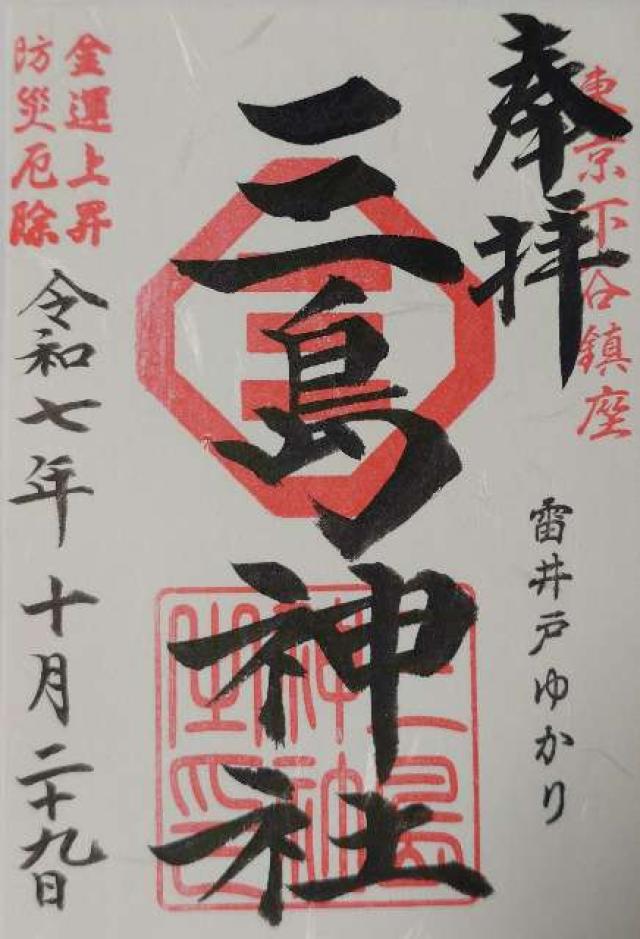 東京下谷鎮座
奉拝
雷井戸ゆかり
三島神社
三島神社之印
金運上昇
防災厄除
令和七年十月二十九日